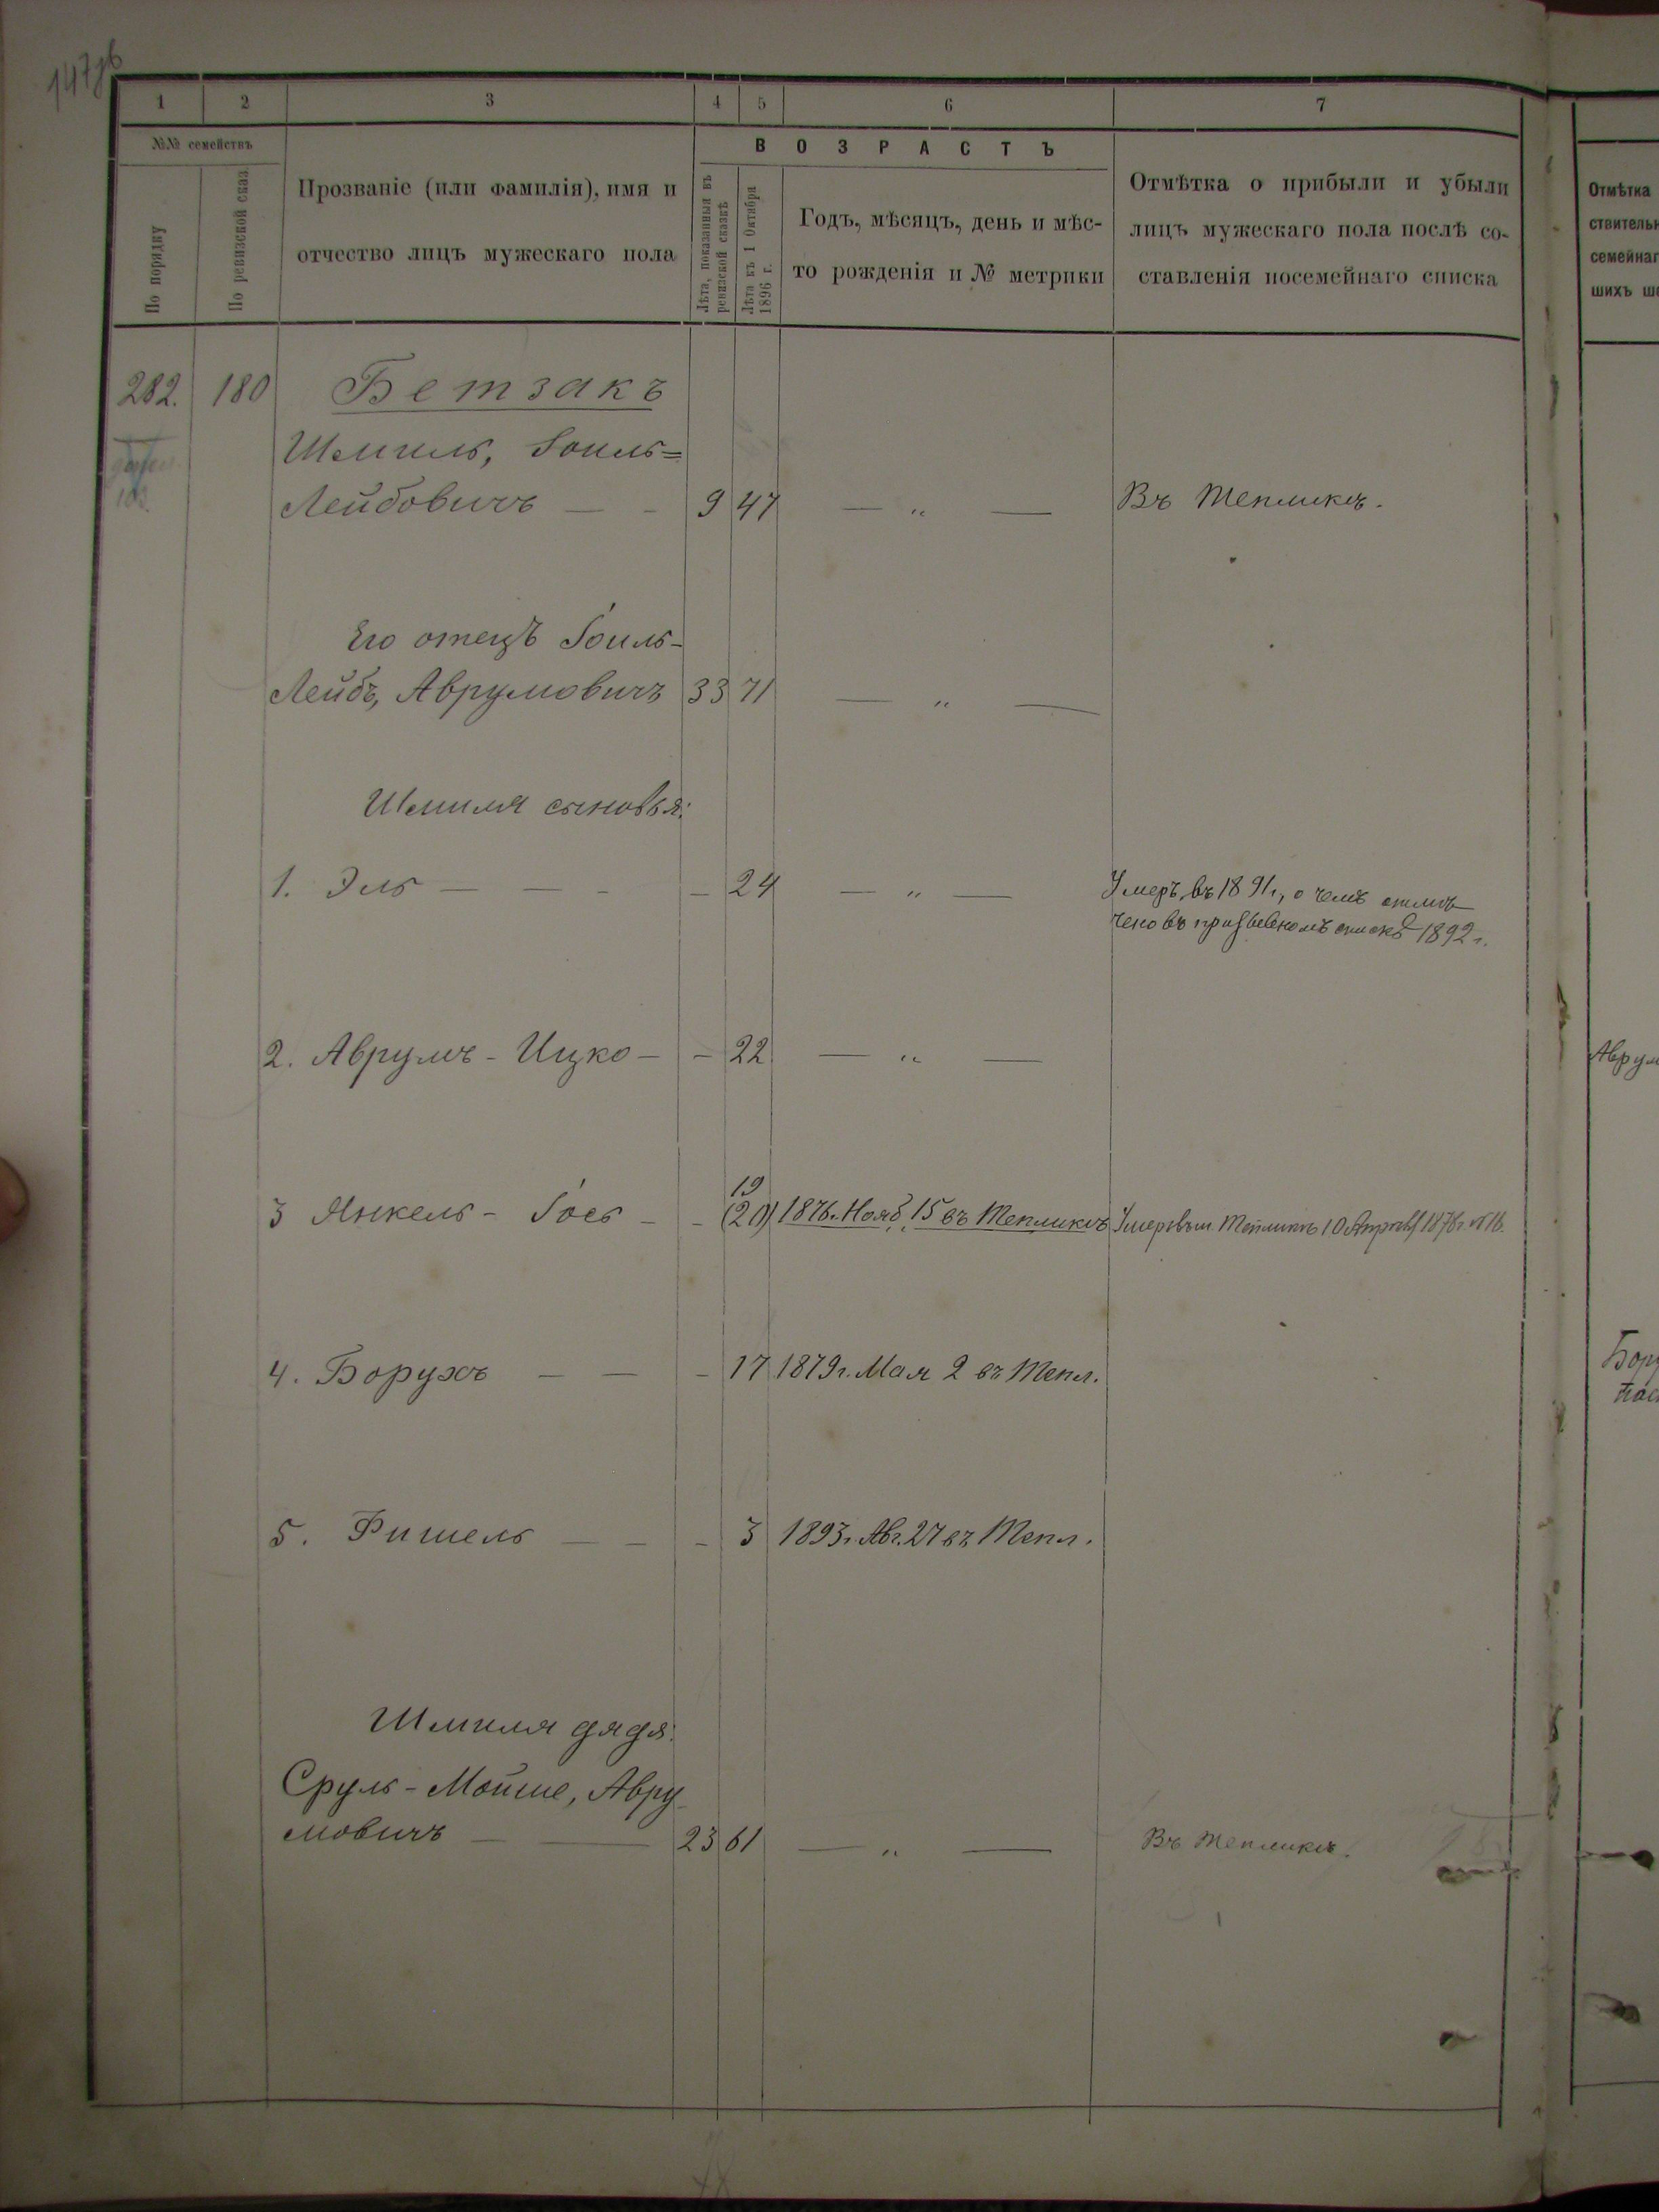 147об
1 2 3 4 5 6 7
№№ семействъ
По порядку
По ревизской сказ.
Прозваніе (или фамилія), имя и
отчество лицъ мужескаго пола
ВОЗРАСТЪ
Лѣта, показанныя въ
ревизской сказкѣ
Лѣта къ 1 Октября
1896 г.
Годъ, мѣсяцъ, день и мѣс-
то рожденія и № метрики
Отмѣтка о прибыли и убыли
лицъ мужескаго пола послѣ со-
ставленія посемейнаго списка
Отмѣтка
ствительн
семейнаг
шихъ
282. 180 Бетзакъ
Шмиль, Іоиль=
Лейбовичъ — - 9 47 — „ — Въ Тепликѣ.
Его отецъ Іоиль-
Лейбъ, Аврумовичъ 33 71 — „ —
Шмиля сыновья:
1. Эль — — - - 24 — „ — Умеръ въ 1891г, о чемъ отмѣ
чено въ призывномъ спискѣ 1892 г.
2. Аврумъ - Ицко — - 22 — „ —
Аврум
19
3 Янкель - Іось - - (20) 1876г. Нояб. 15 въ Тепликѣ Умеръ въ м. Тепликѣ 10 1878г. №16.
4. Борухъ — — - 17 1879г. Мая 2 въ Тепл.
Бору
5. Фишель — - - 3 1893г. Авг. 27 въ Тепл.
Шмиля дядя:
Сруль - Мойше, Авру
мовичъ — — 23 61 — „ — Въ Тепликѣ.